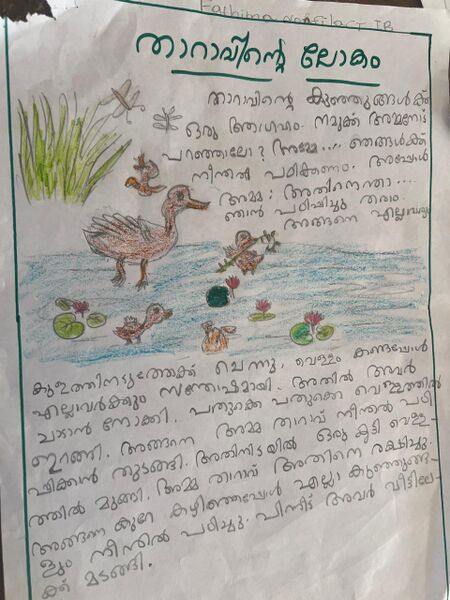 Fathima IB
താറാവിന്റെ ലോകം
താറാവിന്റെ കുഞ്ഞുങ്ങൾക്ക്
ഒരു ആഗ്രഹം. നമുക്ക് അമ്മനോട്
പറഞ്ഞാലോ? അമ്മേ.... ഞങ്ങൾക്ക്
നീന്തൽ പഠിക്കണം. അപ്പോൾ
അമ്മ : അതിനെന്താ....
ഞാൻ പഠിപ്പിച്ചു തരാം.
അങ്ങനെ എല്ലാവരും
കുളത്തിനടുത്തേക്ക് ചെന്നു, വെള്ളം കണ്ടപ്പോൾ
എല്ലാവർക്കും സന്തോഷമായി. അതിൽ അവർ
ചാടാൻ നോക്കി. പതുക്കെ പതുക്കെ വെള്ളത്തിൽ
ഇറങ്ങി. അങ്ങനെ അമ്മ താറാവ് നീന്തൽ പഠി
പ്പിക്കാൻ തുടങ്ങി. അതിനിടയിൽ ഒരു കുട്ടി വെള്ള-
ത്തിൽ മുങ്ങി. അമ്മ താറാവ് അതിനെ രക്ഷിച്ചു.
അങ്ങനെ കുറേ കഴിഞ്ഞപ്പോൾ എല്ലാ കുഞ്ഞുങ്ങ-
ളും നീന്തിൽ പഠിച്ചു. പിന്നീട് അവർ വീട്ടിലേ-
ക്ക് മടങ്ങി.